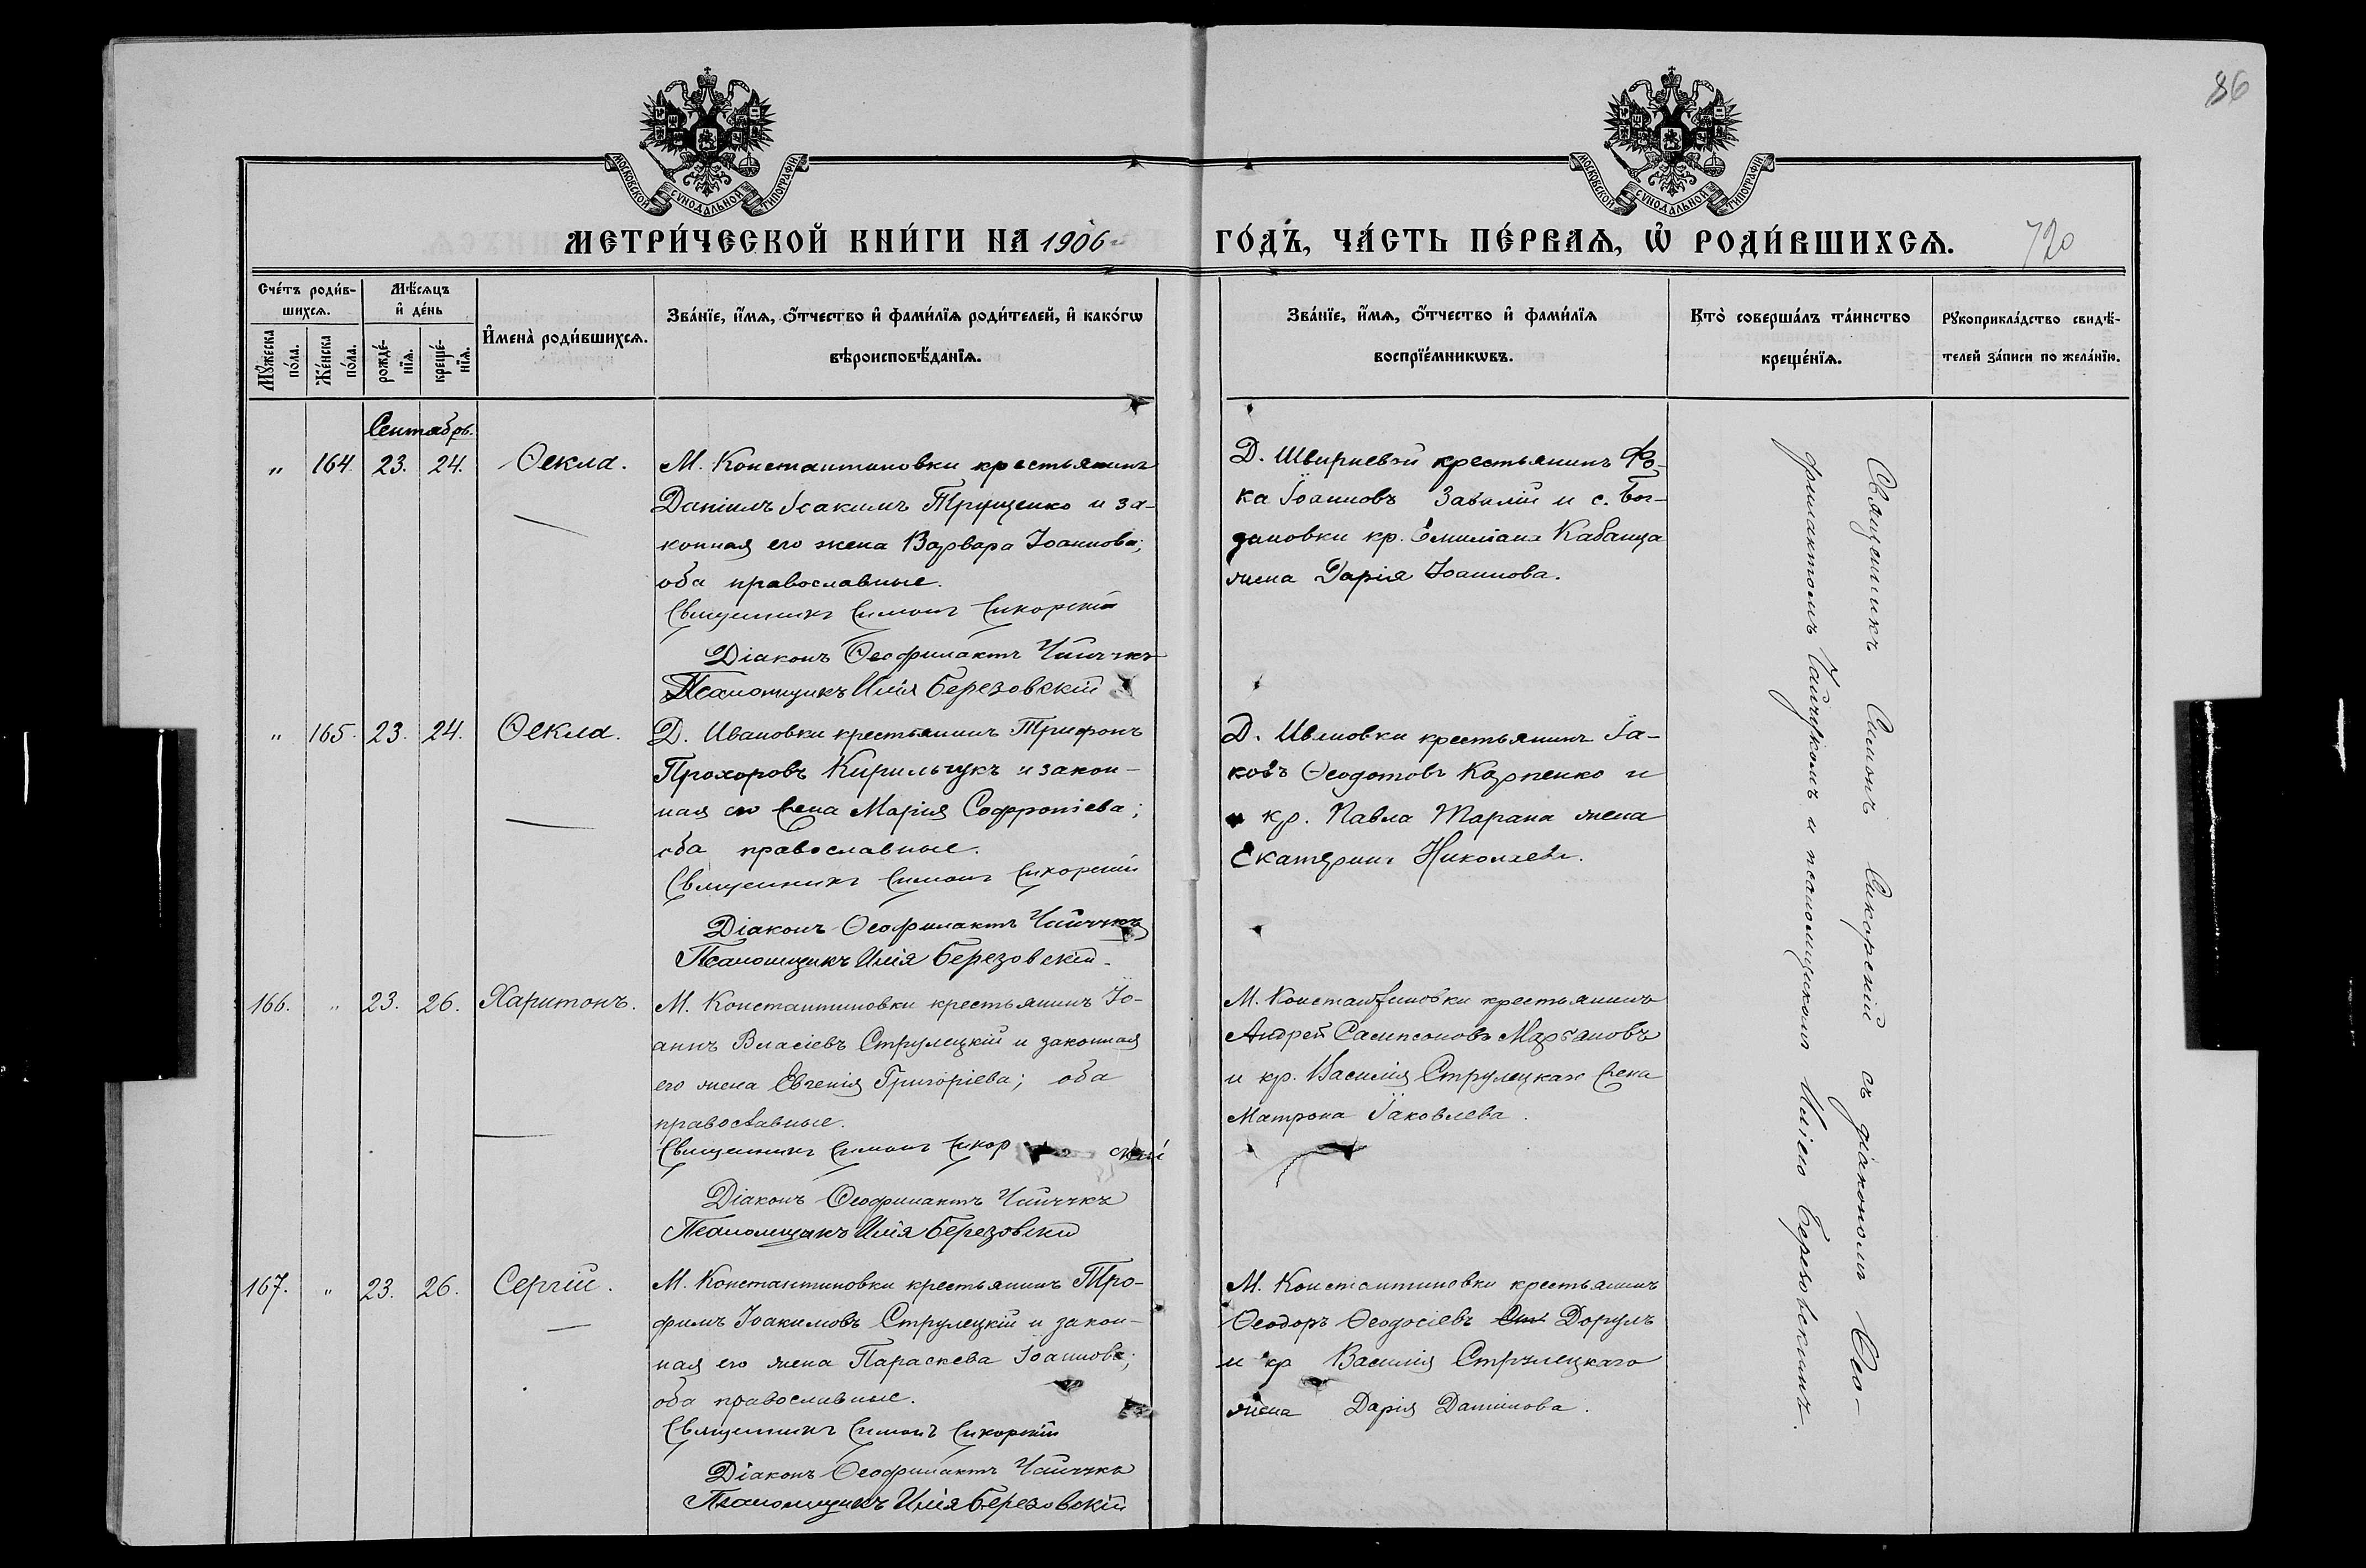 86
МОСКОВСКОЙ СѴНОДАЛЬНОЙ ТИПОГРАФІИ
МОСКОВСКОЙ СѴНОДАЛЬНОЙ ТИПОГРАФІИ
МЕТРИ́ЧЕСКОЙ КНИ́ГИ НА 1906 ГО́ДЪ, ЧА́СТЬ ПЕ́РВАЯ, Ѡ РОДИ́ВШИХСѦ.
720
Сче́тъ роди́в-
шихсѧ.
Мꙋ́жеска
по́ла.
Же́нска
по́ла.
Мѣ́сѧцъ
и҆ де́нь
рожде́-
нїѧ.
креще́-
нїѧ.
И҆мена̀ роди́вшихсѧ.
Зва́нїе, и҆́мѧ, ѻ҆́тчество и҆ фами́лїѧ роди́телей, и҆ како́гѡ
вѣроисповѣ́данїѧ.
Зва́нїе, и҆́мѧ, ѻ҆́тчество и҆ фами́лїѧ
воспрїе́мникѡвъ.
Кто̀ соверша́лъ та́инство
креще́нїѧ.
Рꙋкоприкла́дство свидѣ́-
телей за́писи по жела́нїю.
Сентябрь.
" 164. 23. 24. Ѳекла.
М. Константиновки крестьянинъ
Даніилъ Трущенко и за-
конная его жена Варвара Іоаннова;
оба православные.
Священникъ Симонъ Сикорскій
Діаконъ Ѳеофилактъ Чайчукъ
Псаломщикъ Илія Березовскій
Д. крестьянинъ Фо-
ка Іоанновъ и с. Бог-
дановки кр. Емиліана Кабанца
жена Дарія Іоаннова.
" 165. 23. 24. Ѳекла.
Д. Ивановки крестьянинъ Трифонъ
Прохоровъ Кирильчукъ и закон-
ная его жена Марія Софроніева;
оба православные.
Священникъ Симонъ Сикорскій
Діаконъ Ѳеофилактъ Чайчукъ
Псаломщикъ Илія Березовскій
Д. Ивановки крестьянинъ Іа-
ковъ Ѳеодотовъ Карпенко и
и кр. Павла Тарана жена
Екатерина Николаева.
166. " 23. 26. Харитонъ.
М. Константиновки крестьянинъ Іо-
аннъ Власіевъ Струлецкій и законная
его жена Евгенія Григоріева; оба
православные.
Священникъ Симонъ Сикорскій
Діаконъ Ѳеофилактъ Чайчукъ
Псаломщикъ Илія Березовскій
М. Константиновки крестьянинъ
Андрей Сампсоновъ
и кр. Василія Струлецкаго жена
Матрона Іаковлева.
167. " 23. 26. Сергій.
М. Константиновки крестьянинъ Тро-
фимъ Іоакимовъ Струлецкій и закон-
ная его жена Параскева Іоаннова;
оба православные.
Священникъ Симонъ Сикорскій
Діаконъ Ѳеофилактъ Чайчукъ
Псаломщикъ Илія Березовскій
М. Константиновки крестьянинъ
Ѳеодоръ Ѳеодосіевъ Дорулъ
и кр Василія Струлецкаго
жена Дарія Даніилова.
Священникъ Симонъ Сикорскій съ діакономъ Ѳео-
филактомъ Чайчукомъ и псаломщикомъ Иліею Березовскимъ.